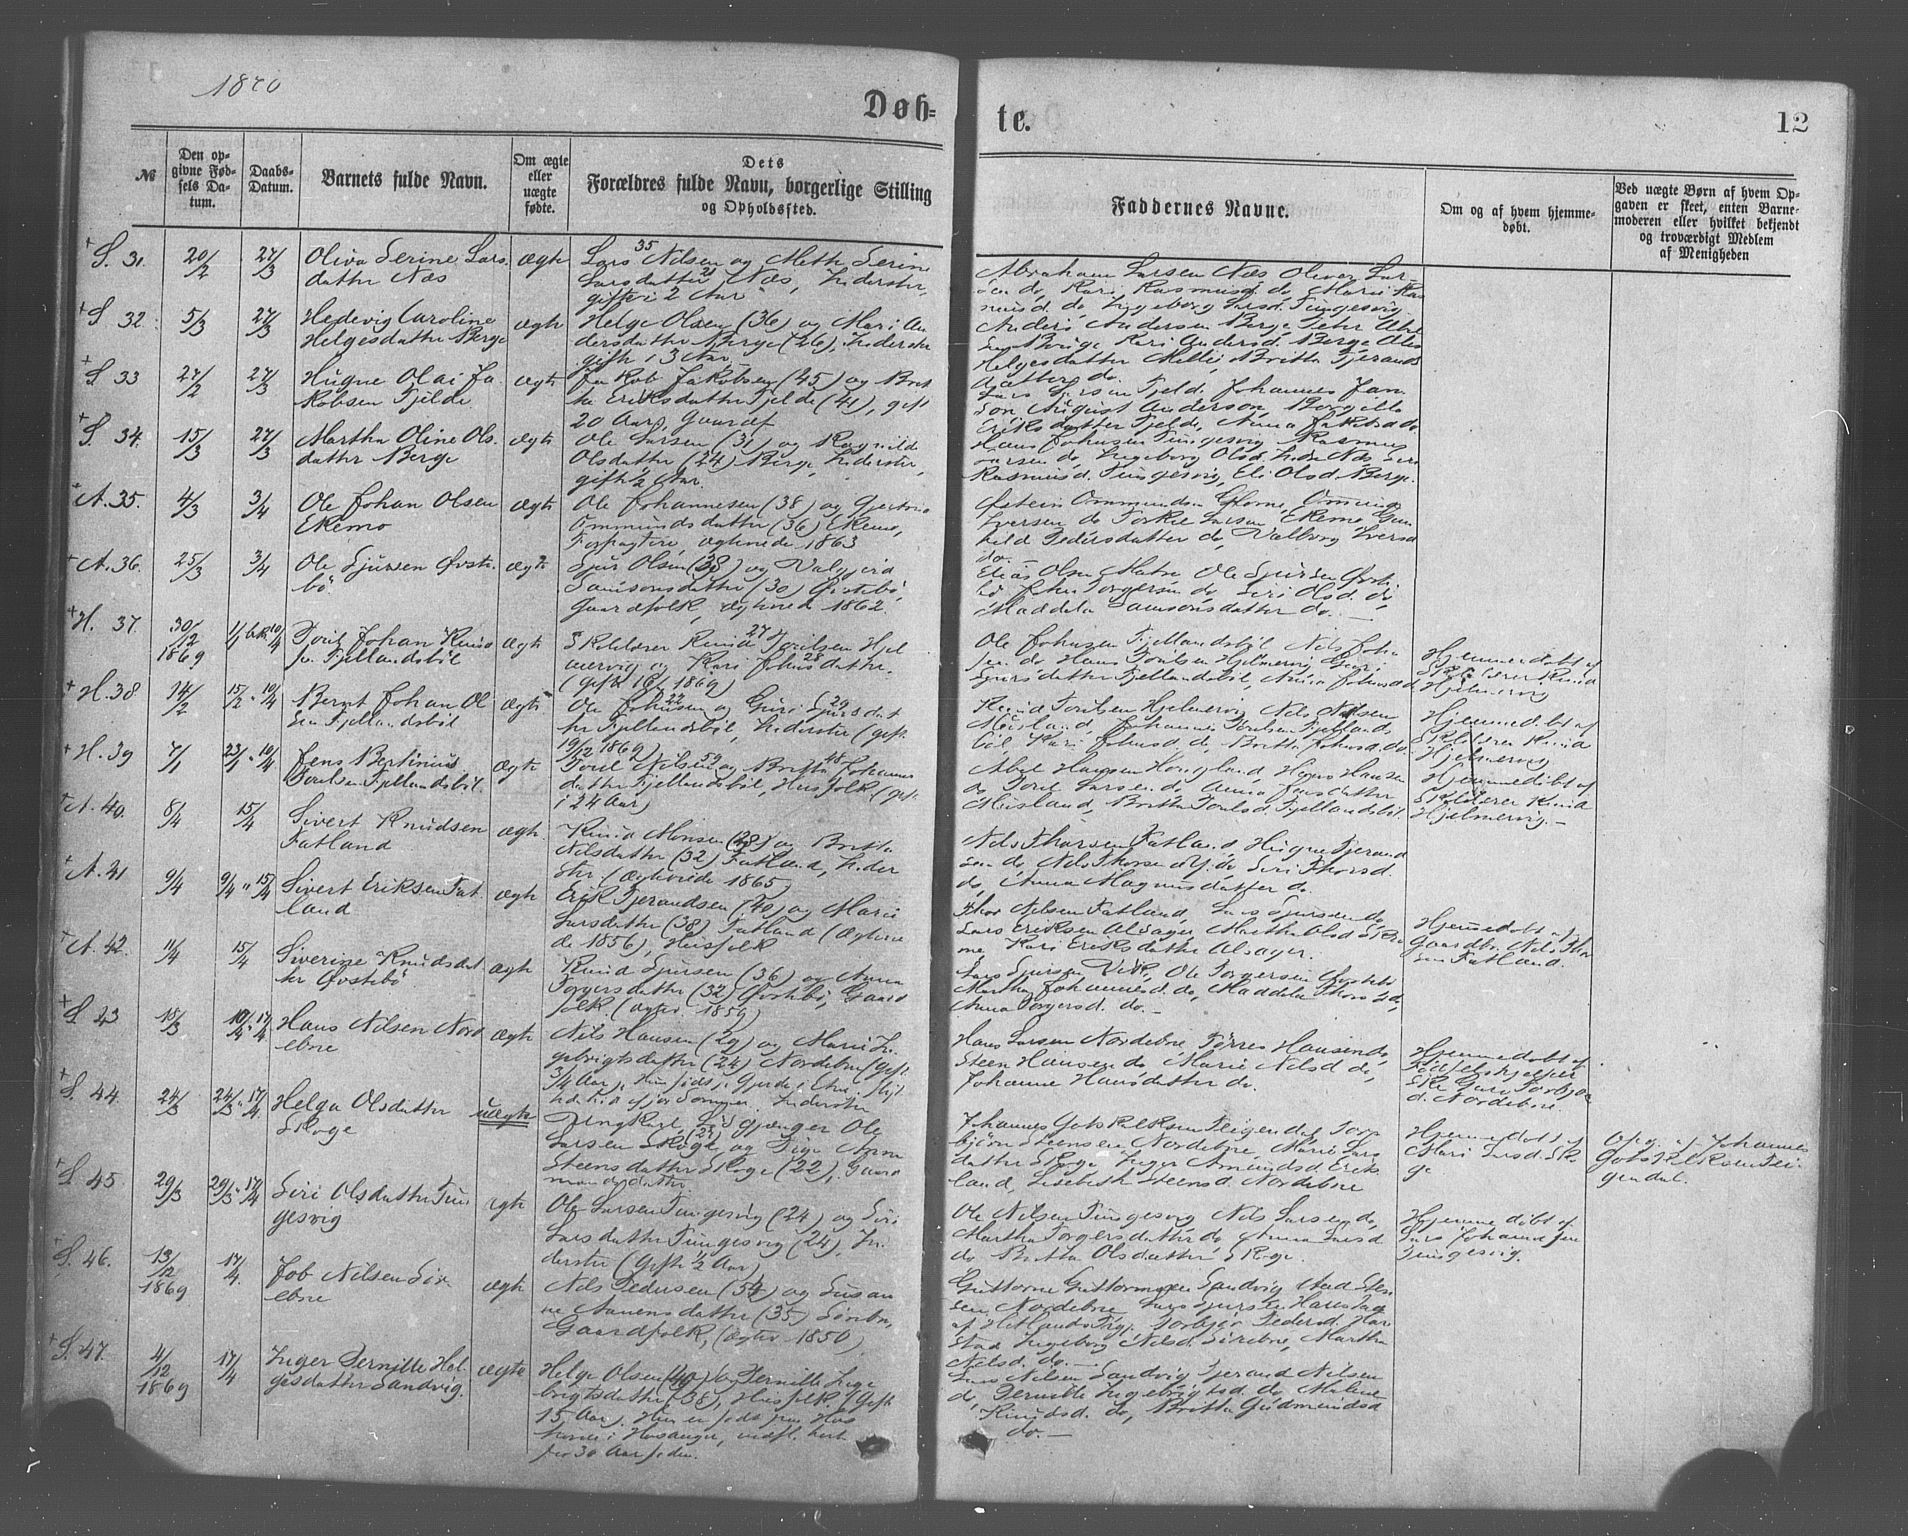 1870
Døb-
te.
12
№
Den opgivne Fødsels Datum.
Daabs-Datum.
Barnets fulde Navn.
Om ægte eller uægte fødte.
Dets Forældres fulde Navn, borgerlige Stilling og Opholdssted.
Faddernes Navne.
Om og af hvem hjemmedøbt.
Ved uægte Børn af hvem Opgaven er skeet, enten Barnemoderen eller hvilket bekjendt og troværdigt Medlem af Menigheden
S. 31. 20/2 27/3
Oliva Serine Lars
datter Næs
ægte
Lars Nilsen 35 og Mette Serine
Larsdatter Næs, Inderster,
gifte i 2 Aar
Abraham Larsen Næs Oliver Lar
sen do, Kari Rasmusd. do Mari Ras
musd. do, Ingeborg Larsd. Tungesvig
S 32 5/3 27/3
Hedevig Caroline
Helgesdatter Berge
ægte
Helge Olsen (36) og Mari An
dersdatter Berge (26), Inderster
gifte i 3 Aar
Anders Andersen Berge Peter
Berge Kari Andersd. Berge
Helgesdatter Britta Tjerands
datter do.
S 33 27/2 27/3
Hugne Olai Ja
kobsen Fjelde
ægte
Jakob Jakobsen (45) og Brit
ta Eriksdatter Fjelde (41), gift
20 Aar, Gaardf
Lars Fjelde, Johannes
August Anderson,
Eriksdatter Fjelde, Anna Jakobsd. do
S. 34. 15/3 27/3
Martha Oline Ols
datter Berge
ægte
Ole Larsen (31) og Ragnilde
Olsdatter (24) Berge, Inderster,
gift ½ Aar.
Hans Johnsen Tungesvig Rasmus
Larsen do Ingeborg Olsd.
Rasmusd. Tungesvig, Eli Olsd. Berge.
A. 35. 4/3 3/4
Ole Johan Olsen
Ekemo
ægte
Ole Johannesen (38) og
Ommundsdatter (36) Ekemo,
Forpagtere, ægteviede 1863
Østein Ommundsen
Iversen do Torkil Larsen Ekemo, Gun
hild Pedersdatter do, Valborg Iversd
do.
A. 36. 25/3 3/4
Ole Sjursen Øvste
bø
ægte
Sjur Olsen (38) og Valgjerd
Samsonsdatter (30) Øvstebø,
Gaardfolk, ægteviede 1862.
Elias Olsen Matre Ole Sjursen Øvste
bø John Torgersen do, Siri Olsd. do,
Maddela Samsonsdatter do.—
H. 37. 30/12 1869 1/1 bk. 10/4
Toril Johan Knud
sen Fjellandsbøl
ægte
Skolelærer Knud 27 Torilsen Hjel
mervig og Kari Johnsdatter 28
(gifte 1869)
Ole Johnsen Fjellandsbøl Nils John
sen do Hans Torilsen Hjelmervig Guri
Sjursdatter Fjellandsbøl, Anna Johnsd. do
Hjemmedøbt af
Skolelærer Knud
Hjelmervig
H. 38 14/2 15/2 " 10/4
Bernt Johan Ol
sen Fjellandsbøl
ægte
Ole Johnsen 22 og Guri Sjursdat 29
ter Fjellandsbøl, Inderster (gift
19/12 1869)
Knud Torilsen Hjelmervig Nils Nilsen
Musland Johannes Torilsen Fjellands
bøl Kari Johnsd. do, Britta Johnsd. do.
Hjemmedøbt af
Skolelærer Knud
Hjelmervig
H. 39 7/1 23/1 " 10/4
Jens Bertinius
Torilsen Fjellandsbøl.
ægte
Toril Nilsen 59 og Britta Johannes 48
datter Fjellandsbøl, Husfolk (gift
i 24 Aar)
Abel Hansen Hougland Hans Hansen
do Toril Larsen do, Anna Larsdatter
Musland, Britta Torilsd. Fjellandsbøl
Hjemmedøbt af
Skolelærer Knud
Hjelmervig.—
A. 40. 8/4 15/4
Sivert Knudsen
Fatland
ægte
Knud Monsen (28) og Britta
Nilsdatter (32) Fatland, Inder
ster (ægteviede 1865)
Nils Thorsen Fatland, Hugne Tjerand
sen do, Nils Thorsen do, Siri Thorsd.
do, Anna Magnusdatter do.
A. 41 9/4 9/4 " 15/4
Sivert Eriksen Fat
land
ægte
Erik Tjerandsen (40) og Mari
Larsdatter (38) Fatland (ægtevie
de 1856), Husfolk
Thor Nilsen Fatland, Lars Sjursen do,
Lars Eriksen Alsager, Martha Olsd.
Kari Eriksdatter Alsager.
Hjemmedøbt af
Gaardbr. Nils Thor
sen Fatland.
A. 42. 11/4 15/4
Siverine Knudsdat
ter Øvstebø
ægte
Knud Sjursen (36) og Anna
Torgersdatter (32) Øvstebø, Gaard
folk. (ægtev. 1859)
Lars Sjursen Vik, Ole Torgersen Øvstebø
Martha Johannesd. do, Maddela Thorsd. do,
Anna Torgersd. do.—
S 43 18/3 10/4 " 17/4
Hans Nilsen Nord
ebne
ægte
Nils Hansen (29) og Mari In
gebrigtsdatter (24) Nordebne (gift
3/4 Aar, Inderster
Hans Larsen Nordebne Tørres Hansen do,
Steen Hansen do Mari Nilsd do,
Johanne Hansdatter do.
Hjemmedøbt af
Fødselshjælper
ske Guro Torbjør
d. Nordebne
S. 44. 24/3 24/3 " 17/4
Helga Olsdatter
Skoge
uægte
Ungkarl, Ole
Larsen Skoge (27) og Pige Anna
Steensdatter Skoge (22), Gaard
mandsdatter
Johannes Gotskalksen Teigendal Tor
bjørn Steensen Nordebne, Mari Lars
datter Skoge Inger Amundsd. Erik
land, Lisebeth Steensd. Nordebne
Hjemmedøbt af
Mari Larsd. Sko
ge
Opg. af Johannes
Gotskalksen Tei
gendal.
S. 45. 29/3 29/3 " 17/4
Siri Olsdatter Tun
gesvig
ægte
Ole Larsen Tungesvig (24) og Siri
Larsdatter Tungesvig (24), In
derster (gifte ½ Aar)
Ole Nilsen Tungesvig Nils Larsen do,
Martha Torgersdatter do Anna Larsd
do Britta Olsdatter Skoge.
Hjemmedøbt af
Lars Johannesen
Tungesvig.
S. 46. 13/12 1869 17/4.
Job Nilsen Sør
ebne
ægte
Nils Pedersen (54) og Susan
ne Aanensdatter (35) Sørebne,
Gaardfolk, (ægtev. 1850)
Guttorm Guttormsen Sandvig Aad Sten
sen Nordebne Lars Sjursen
Torbjør Pedersd. Har
stad Ingeborg Nilsd. Sørebne, Martha
Nilsd. do.—
S. 47. 4/12 1869 17/4
Inger Pernille Hel
gesdatter Sandvig.
ægte
Helge Olsen (40) og Pernille Inge
brigtsdatter (38), Husfolk. (Gift
15 Aar. Hun er født paa
i Hosanger, indfl. hert
for 30 Aar siden.
Lars Nilsen Sandvig Tjerand Nilsen
do, Pernille Ingebrigtsd. do, Malene
Knudsd. do, Britta Gudmundsd
do.—